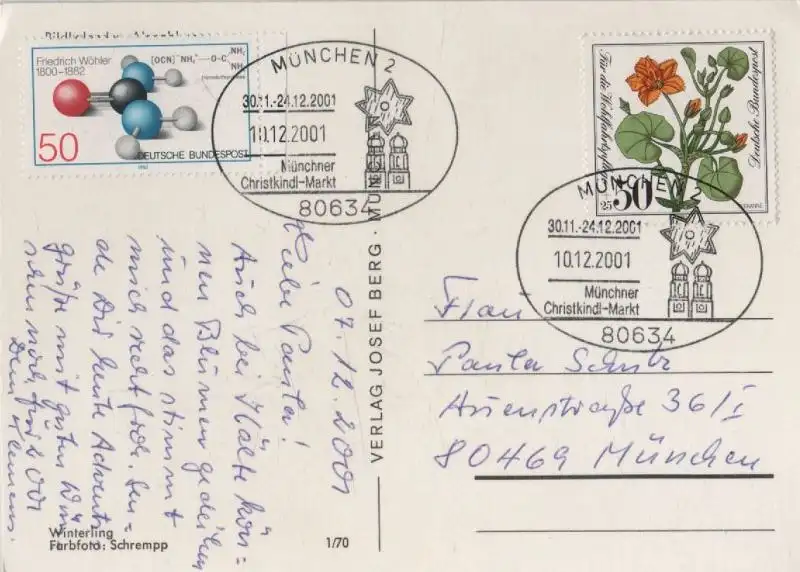 Friedrich Wöhler
1800–1882
[OCN]⁻ NH₄⁺ → O=C
NH₂
NH₂
50
DEUTSCHE BUNDESPOST
1982
MÜNCHEN 2
30.11.-24.12.2001
10.12.2001
Münchner
Christkindl-Markt
80634
Für die Wohlfahrtspflege
Deutsche Bundespost
50
25
MÜNCHEN 2
30.11.-24.12.2001
10.12.2001
Münchner
Christkindl-Markt
80634
07.12.2001
Liebe Paula!
Auch bei Kälte kön=
nen Blumen gedeihen
und das stimmt
mich recht froh. Sen=
de Dir heute Advent
grüße mit guten Wün
schen auch für 2002
Dein Klemens.
VERLAG JOSEF BERG · MÜNCHEN
Frau
Paula Schulz
Auenstraße 36/I
80469 München
Winterling
Farbfoto: Schrempp
1/70